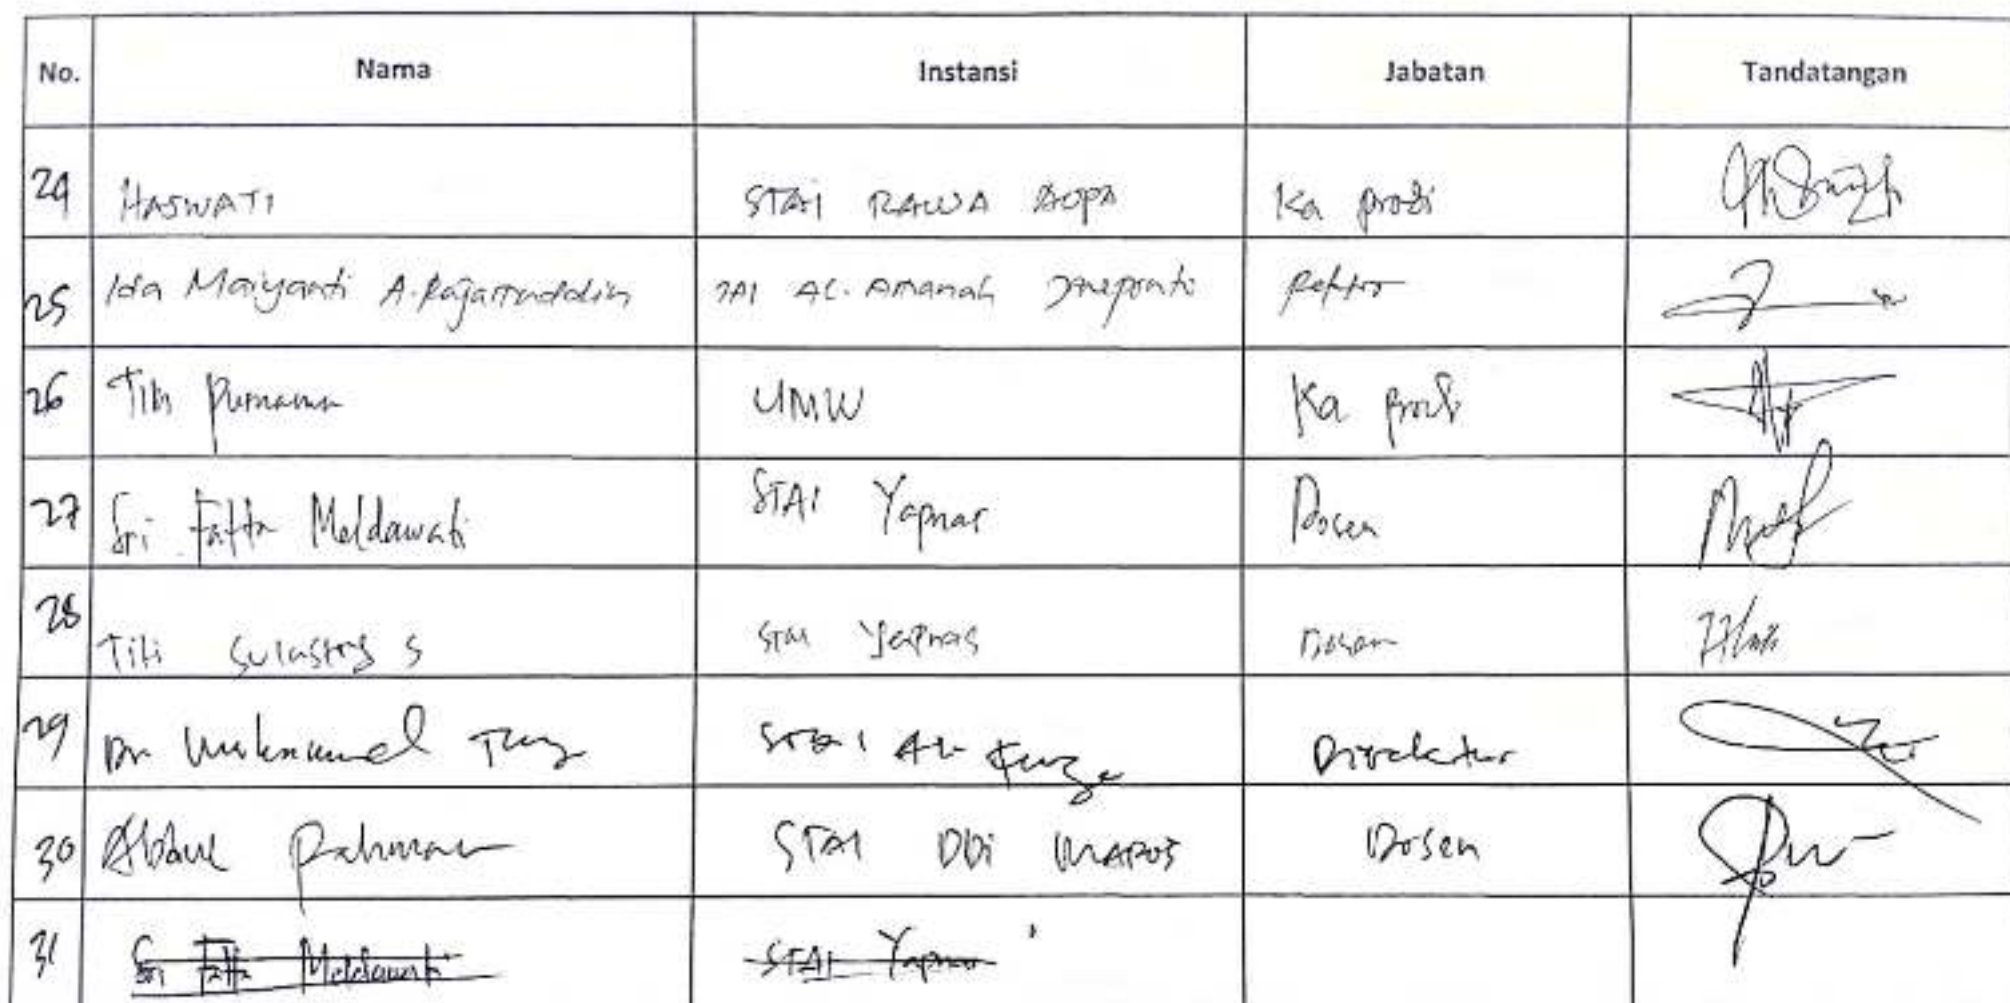 No. Nama Instansi Jabatan Tandatangan
24 HASWATI STAI RAWA AOPA Ka prodi
25 Ida Maryanti A. IAI AL-Amanah Jeneponto Rektor
26 Purnama UMW Ka prodi
27 Sri Fatta Meldawati STAI Yapnas Dosen
28 Titi S STAI Yapnas Dosen
29 Dr Muhammad STAI Al- Direktur
30 Abdul Rahman STAI DDI MAROS Dosen
31 Sri Fatta Meldawati STAI Yapnas